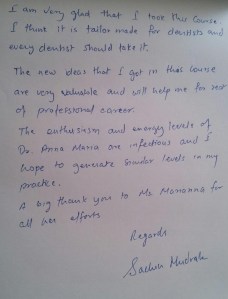 I am very glad that I took this course
I think it is tailor made for dentists and
every dentist should take it.
The new ideas that I got in this course
are very valuable and will help me for rest
of professional career.
The enthusiasm and energy levels of
Dr. Anna Maria are infectious and I
hope to generate similar levels in my
practice.
A big thank you to Ms. Marianna for
all her efforts
Regards
Sachin